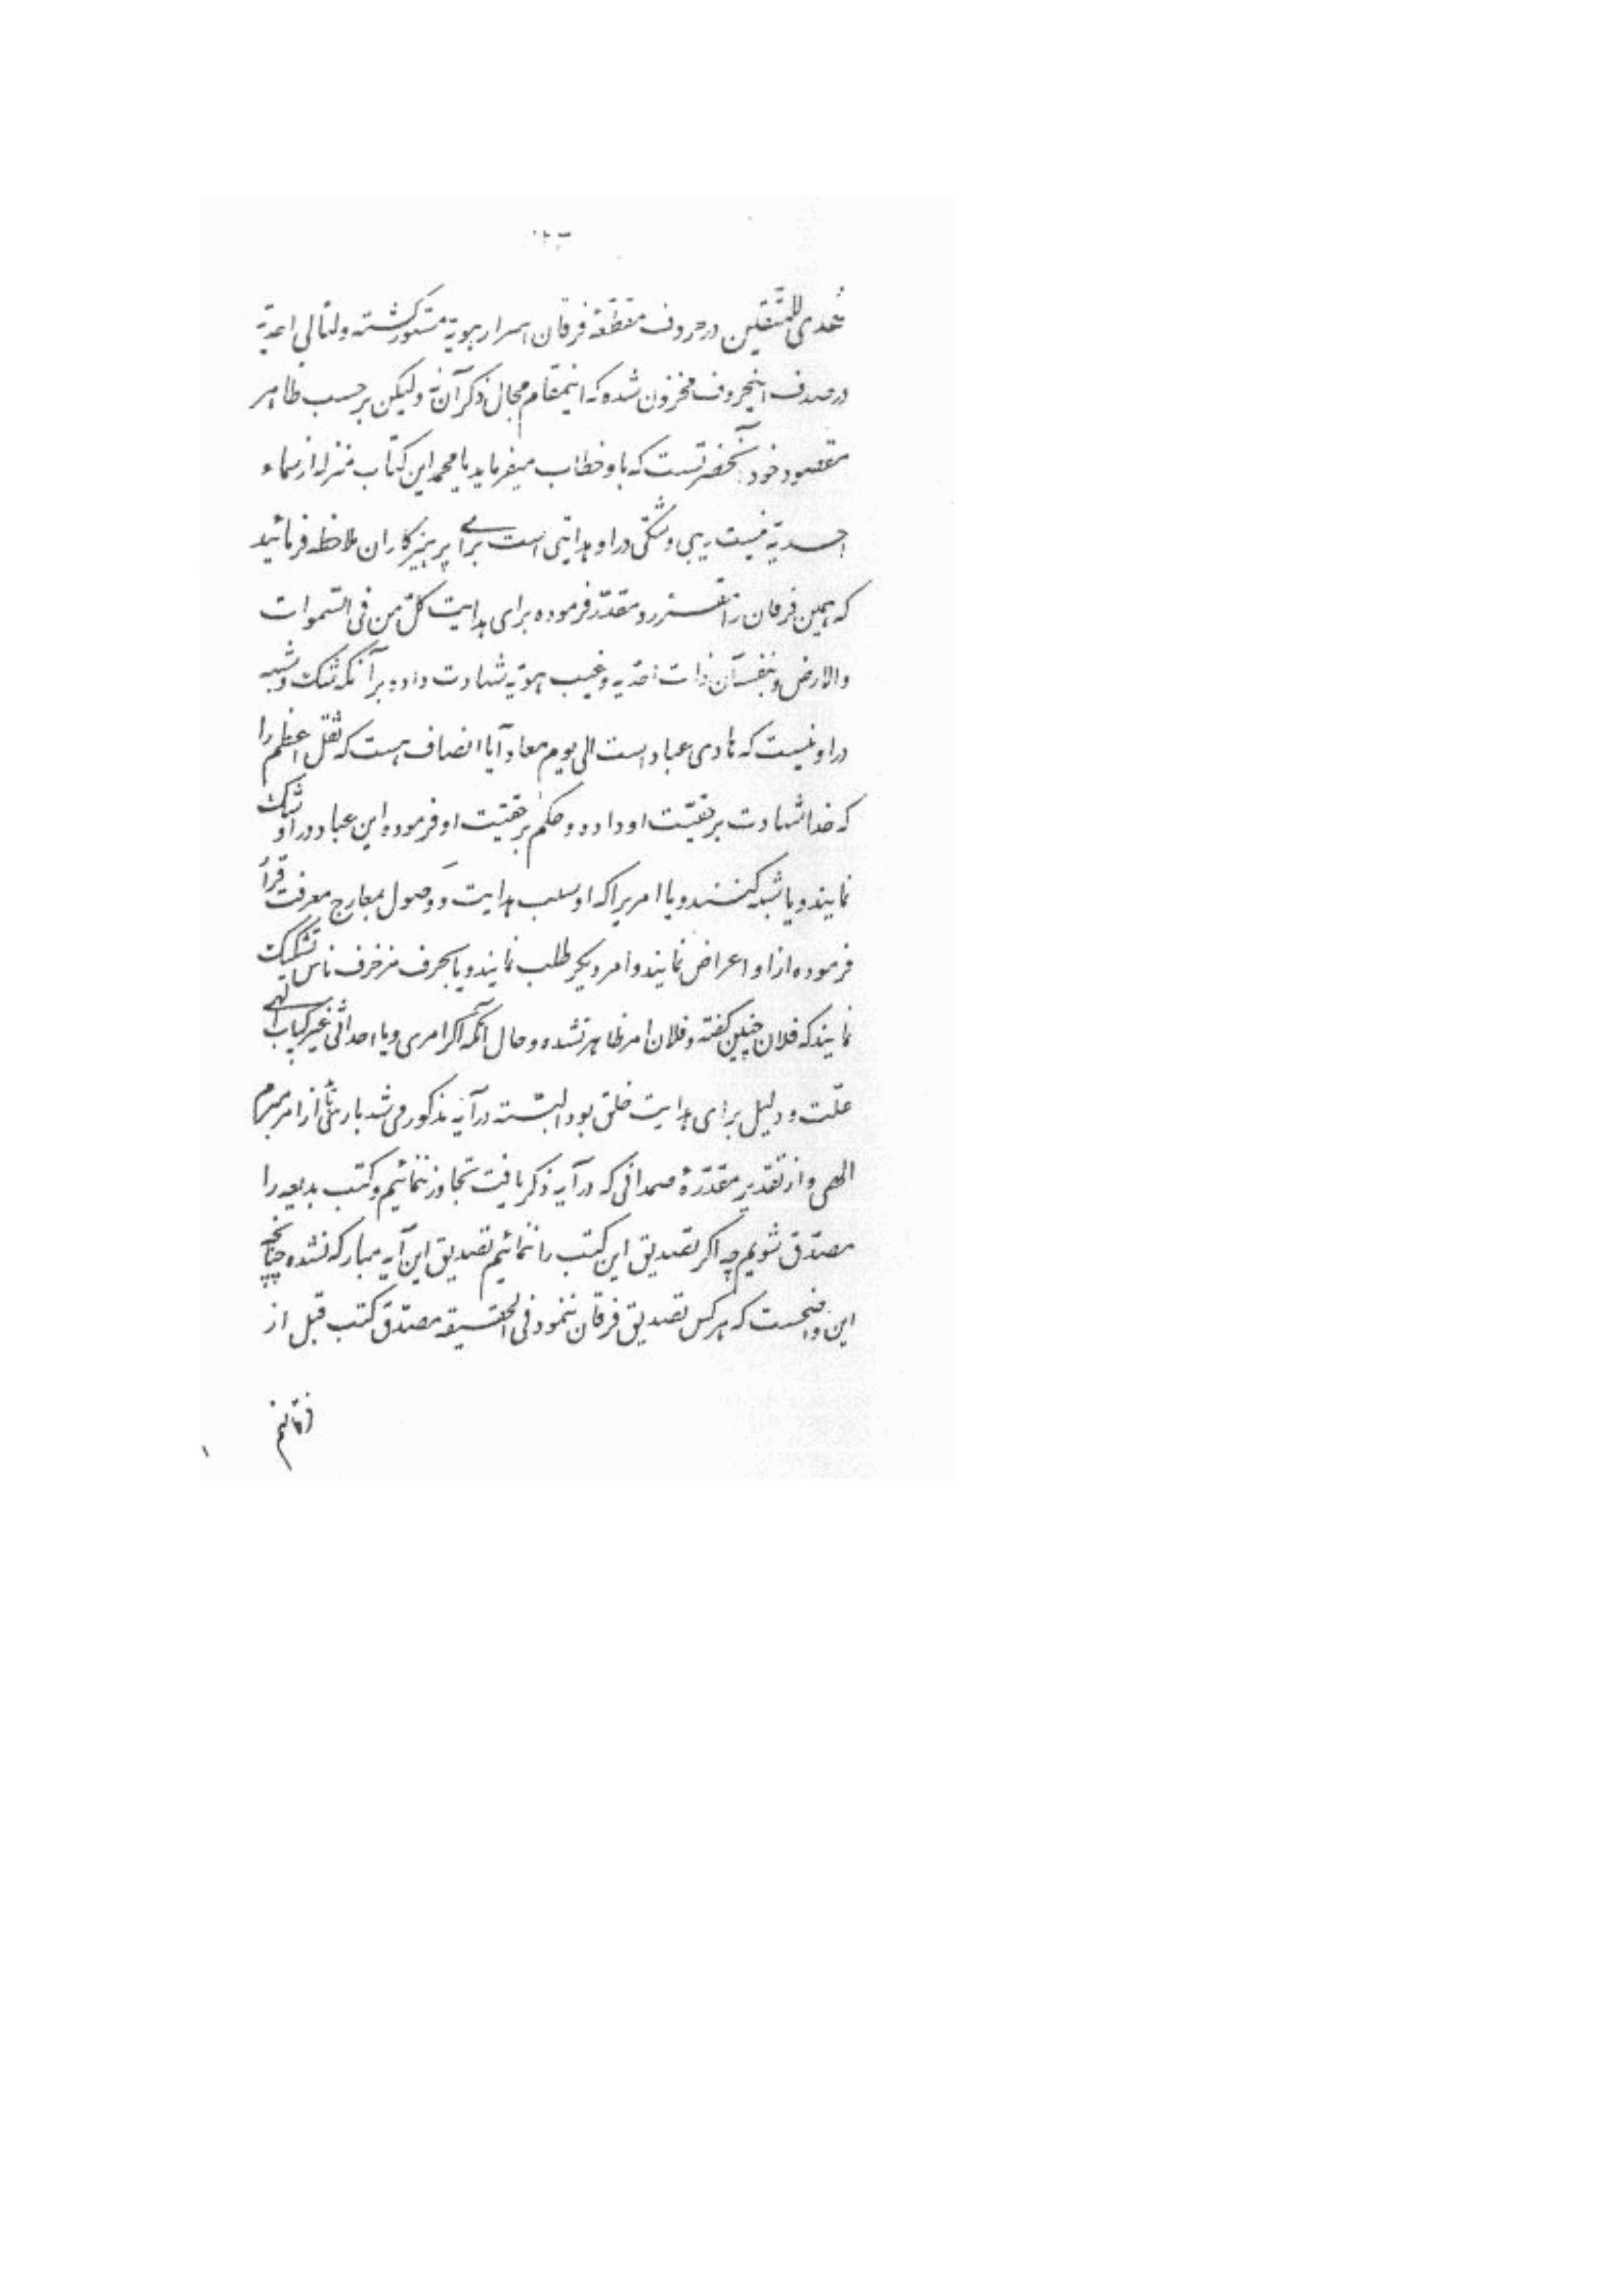 هُدًی للمتّقین در حروف مقطّعهٔ فرقان اسرار هویّه مستور گشته و لئالی احدیّه
در صدف اینحروف مخزون شده که اینمقام مجال ذکر آن نه ولیکن بر حسب ظاهر
مقصود خود آنحضرتست که باو خطاب میفرماید یا محمد این کتاب منزله از سماء
احدیّه نیست ریبی و شکّی در او هدایتی است برای پرهیزکاران ملاحظه فرمائید
که همین فرقان را مقرّر و مقدّر فرموده برای هدایت کلّ من فی السّموات
والارض و بنفسه آن ذات احدیه و غیب هویّه شهادت داده بر آنکه شک و شبهه
در او نیست که هادی عباد است الی یوم معاد آیا انصاف هست که ثقل اعظم را
که خدا شهادت بر حقیّت او داده و حکم بر حقیّت او فرموده این عباد در او شک
نمایند و یا شبهه کنند و یا امریرا که او سبب هدایت و وصول بمعارج معرفت قرار
فرموده از او اعراض نمایند و امر دیگر طلب نمایند و یا بحرف مزخرف ناس تشکیک
نمایند که فلان چنین گفته و فلان امر ظاهر نشده و حال آنکه اگر امری و یا احداثی غیر کتاب الهی
علّت و دلیل برای هدایت خلق بود البتّه در آیه مذکور می شد باری از امر مبرم
الهی و از تقدیر مقدّرهٔ صمدانی که در آیه ذکر یافت تجاوز ننمائیم و کتب بدیعه را
مصدّق شویم چه اگر تصدیق این کتب را ننمائیم تصدیق این آیه مبارکه نشده چنانچه
این واضحست که هر کس تصدیق فرقان ننمود فی الحقیقه مصدّق کتب قبل از